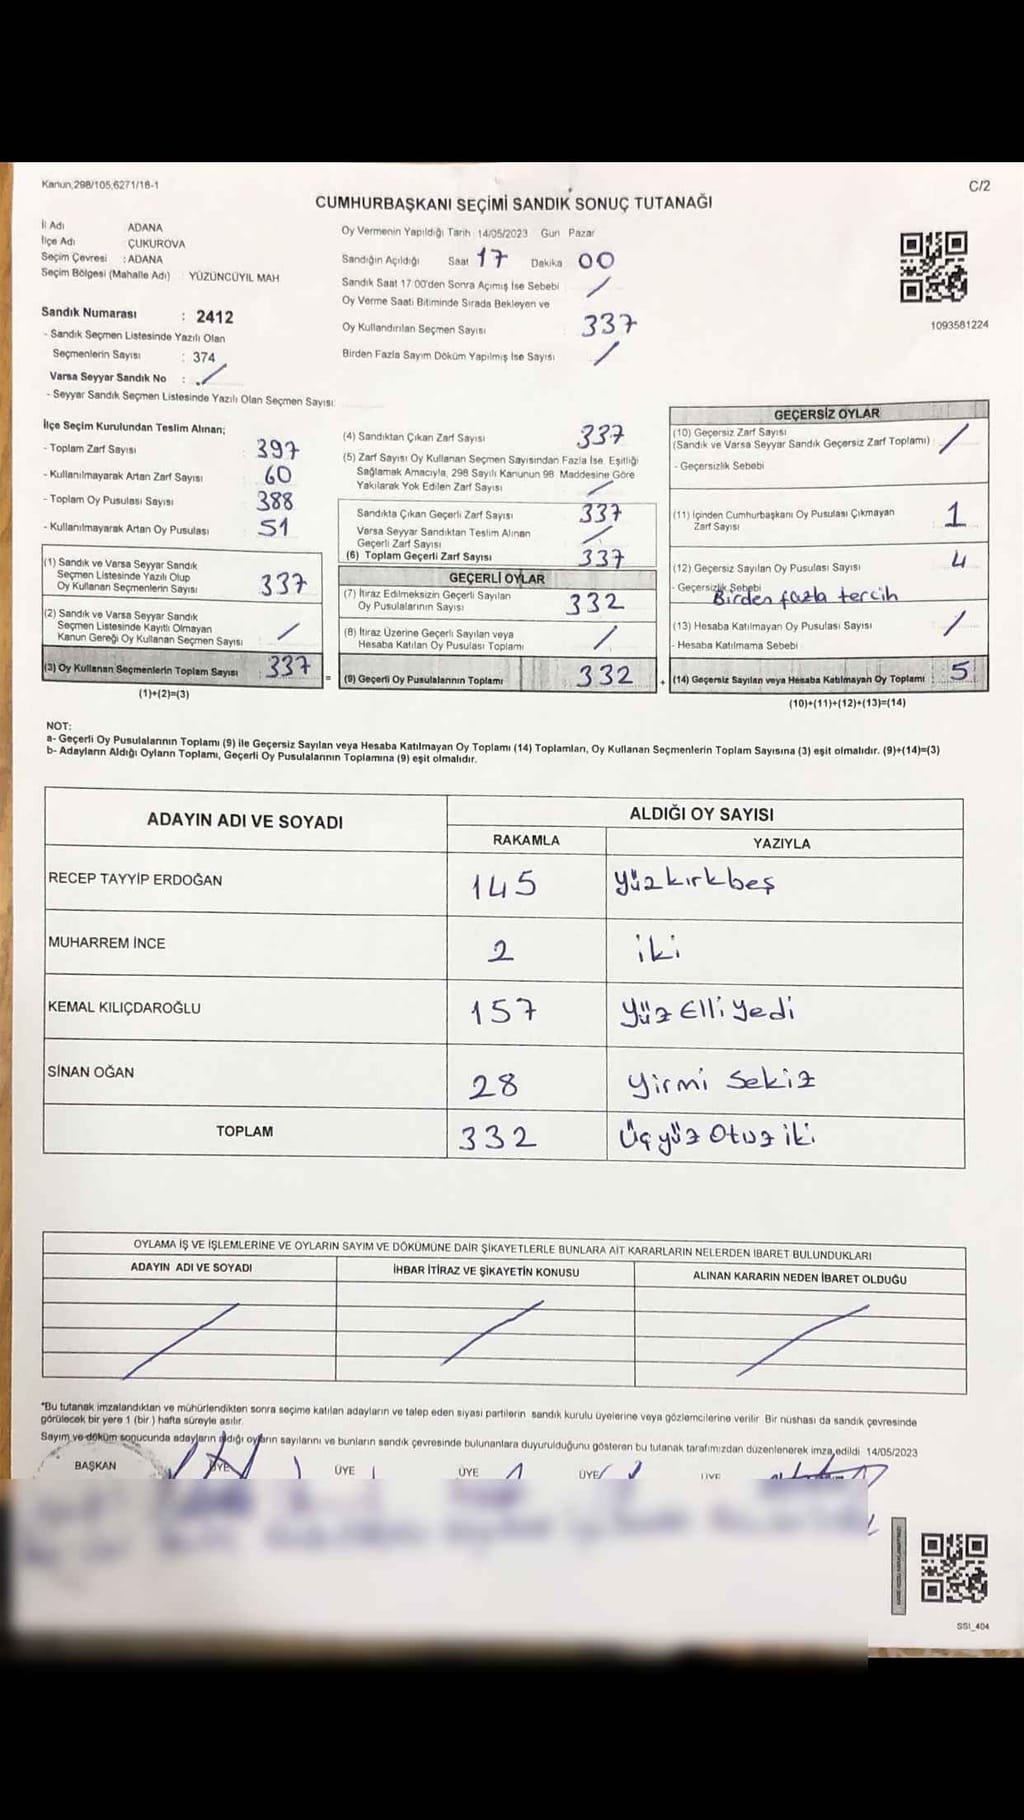 Kanun,298/105,6271/18-1
C/2
CUMHURBAŞKANI SEÇİMİ SANDIK SONUÇ TUTANAĞI
İl Adı ADANA
İlçe Adı : ÇUKUROVA
Seçim Çevresi : ADANA
Seçim Bölgesi (Mahalle Adı) YÜZÜNCÜYIL MAH
Sandık Numarası : 2412
- Sandık Seçmen Listesinde Yazılı Olan
Seçmenlerin Sayısı : 374
Varsa Seyyar Sandık No : /
- Seyyar Sandık Seçmen Listesinde Yazılı Olan Seçmen Sayısı:
Oy Vermenin Yapıldığı Tarih 14/05/2023 Gün Pazar
Sandığın Açıldığı Saat 17 Dakika 00
Sandık Saat 17 00'den Sonra Açımış İse Sebebi /
Oy Verme Saati Bitiminde Sırada Bekleyen ve
Oy Kullandırılan Seçmen Sayısı 337
Birden Fazla Sayım Döküm Yapılmış İse Sayısı /
1093581224
İlçe Seçim Kurulundan Teslim Alınan;
- Toplam Zarf Sayısı 397
- Kullanılmayarak Artan Zarf Sayısı 60
- Toplam Oy Pusulası Sayısı 388
- Kullanılmayarak Artan Oy Pusulası 51
(1) Sandık ve Varsa Seyyar Sandık
Seçmen Listesinde Yazılı Olup
Oy Kullanan Seçmenlerin Sayısı 337
(2) Sandık ve Varsa Seyyar Sandık
Seçmen Listesinde Kayıtlı Olmayan
Kanun Gereği Oy Kullanan Seçmen Sayısı /
(3) Oy Kullanan Seçmenlerin Toplam Sayısı 337
(1)+(2)=(3)
(4) Sandıktan Çıkan Zarf Sayısı 337
(5) Zarf Sayısı Oy Kullanan Seçmen Sayısından Fazla İse, Eşitliği
Sağlamak Amacıyla, 298 Sayılı Kanunun 98 Maddesine Göre
Yakılarak Yok Edilen Zarf Sayısı /
Sandıkta Çıkan Geçerli Zarf Sayısı 337
Varsa Seyyar Sandıktan Teslim Alınan
Geçerli Zarf Sayısı /
(6) Toplam Geçerli Zarf Sayısı 337
GEÇERLİ OYLAR
(7) İtiraz Edilmeksizin Geçerli Sayılan
Oy Pusulalarının Sayısı 332
(8) İtiraz Üzerine Geçerli Sayılan veya
Hesaba Katılan Oy Pusulası Toplamı /
= (9) Geçerli Oy Pusulalarının Toplamı 332
GEÇERSİZ OYLAR
(10) Geçersiz Zarf Sayısı
(Sandık ve Varsa Seyyar Sandık Geçersiz Zarf Toplamı) /
- Geçersizlik Sebebi
(11) İçinden Cumhurbaşkanı Oy Pusulası Çıkmayan
Zarf Sayısı 1
(12) Geçersiz Sayılan Oy Pusulası Sayısı 4
- Geçersizlik Sebebi
Birden fazla tercih
(13) Hesaba Katılmayan Oy Pusulası Sayısı /
- Hesaba Katılmama Sebebi
+ (14) Geçersiz Sayılan veya Hesaba Katılmayan Oy Toplamı : 5
(10)+(11)+(12)+(13)=(14)
NOT:
a- Geçerli Oy Pusulalarının Toplamı (9) ile Geçersiz Sayılan veya Hesaba Katılmayan Oy Toplamı (14) Toplamları, Oy Kullanan Seçmenlerin Toplam Sayısına (3) eşit olmalıdır. (9)+(14)=(3)
b- Adayların Aldığı Oyların Toplamı, Geçerli Oy Pusulalarının Toplamına (9) eşit olmalıdır.
ADAYIN ADI VE SOYADI ALDIĞI OY SAYISI
RAKAMLA YAZIYLA
RECEP TAYYİP ERDOĞAN 145 yüzkırkbeş
MUHARREM İNCE 2 iki
KEMAL KILIÇDAROĞLU 157 yüz Elli yedi
SİNAN OĞAN 28 yirmi Sekiz
TOPLAM 332 Üçyüz Otuz iki
OYLAMA İŞ VE İŞLEMLERİNE VE OYLARIN SAYIM VE DÖKÜMÜNE DAİR ŞİKAYETLERLE BUNLARA AİT KARARLARIN NELERDEN İBARET BULUNDUKLARI
ADAYIN ADI VE SOYADI İHBAR İTİRAZ VE ŞİKAYETİN KONUSU ALINAN KARARIN NEDEN İBARET OLDUĞU
*Bu tutanak imzalandıktan ve mühürlendikten sonra seçime katılan adayların ve talep eden siyasi partilerin sandık kurulu üyelerine veya gözlemcilerine verilir Bir nüshası da sandık çevresinde
görülecek bir yere 1 (bir ) hafta süreyle asılır.
Sayım ve döküm sonucunda adayların aldığı oyların sayılarını ve bunların sandık çevresinde bulunanlara duyurulduğunu gösteren bu tutanak tarafımızdan düzenlenerek imza edildi 14/05/2023
BAŞKAN ÜYE ÜYE ÜYE ÜYE ÜYE
SSI_404